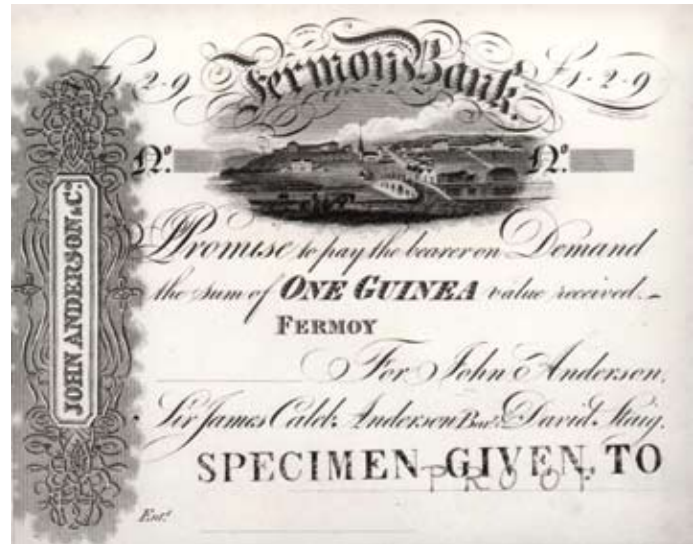 £1-2-9 £1-2-9
Fermoy Bank.
No. No.
JOHN ANDERSON & Co.
Promise to pay the bearer on Demand
the sum of ONE GUINEA value received.
FERMOY
For John Anderson,
Sir James Caleb Anderson Bart. David Staig.
SPECIMEN GIVEN TO
PROOF
Entd.